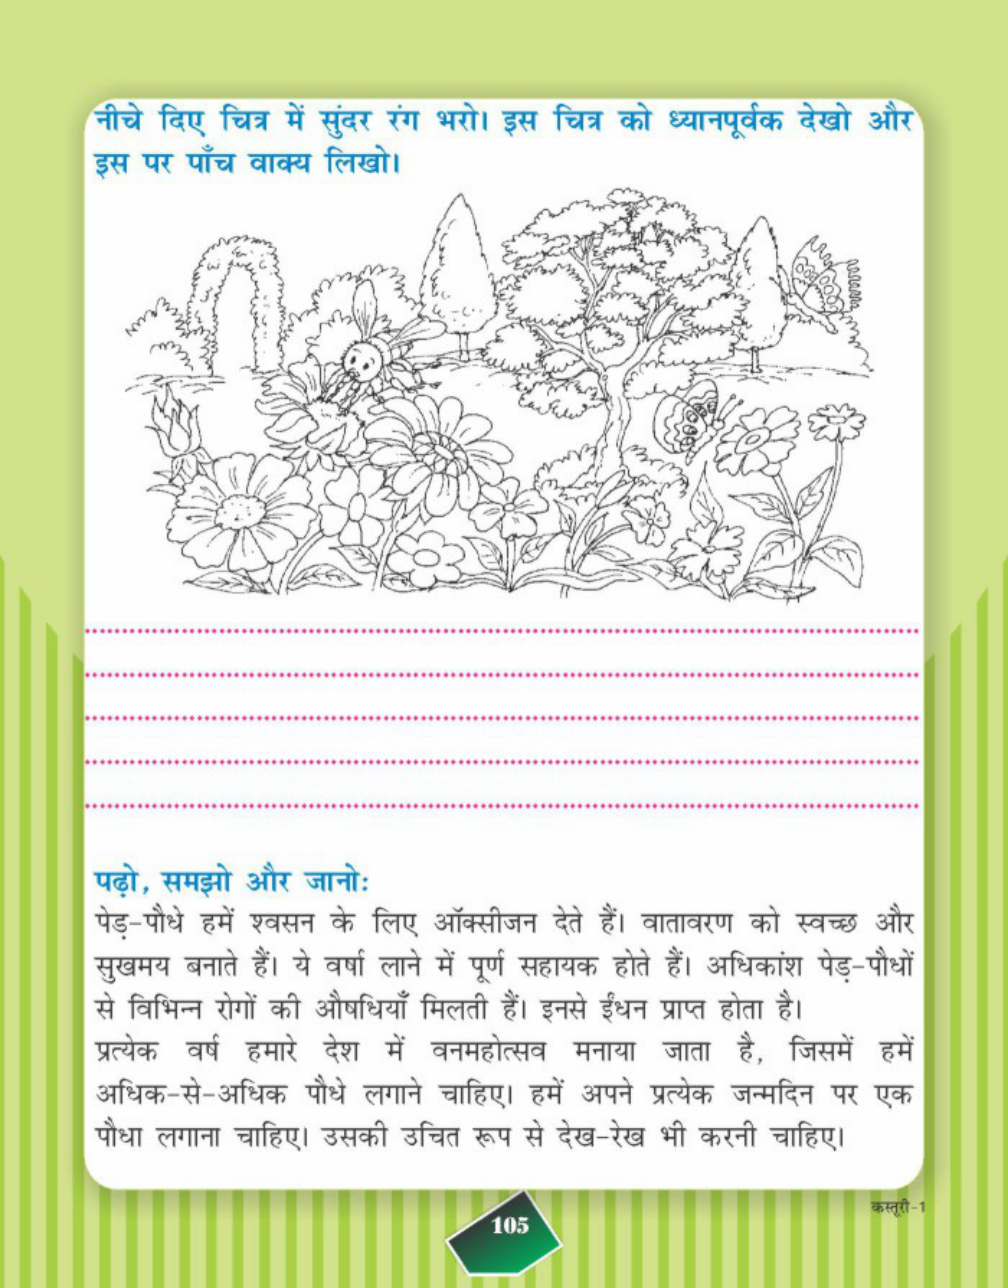 नीचे दिए चित्र में सुंदर रंग भरो। इस चित्र को ध्यानपूर्वक देखो और
इस पर पाँच वाक्य लिखो।
पढ़ो, समझो और जानोः
पेड़-पौधे हमें श्वसन के लिए ऑक्सीजन देते हैं। वातावरण को स्वच्छ और
सुखमय बनाते हैं। ये वर्षा लाने में पूर्ण सहायक होते हैं। अधिकांश पेड़-पौधों
से विभिन्न रोगों की औषधियाँ मिलती हैं। इनसे ईंधन प्राप्त होता है।
प्रत्येक वर्ष हमारे देश में वनमहोत्सव मनाया जाता है, जिसमें हमें
अधिक-से-अधिक पौधे लगाने चाहिए। हमें अपने प्रत्येक जन्मदिन पर एक
पौधा लगाना चाहिए। उसकी उचित रूप से देख-रेख भी करनी चाहिए।
कस्तूरी-1
105